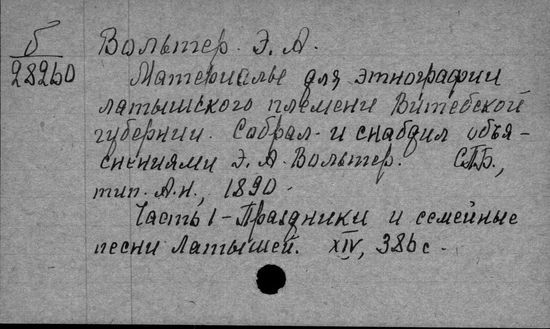 б Вольтер. Э. А.
28260 Материалы для этнографии
латышского племени Витебской
губернии. Собрал и снабдил объя-
снениями Э. А. Вольтер. СПб.,
тип. А.н., 1890.
Часть 1 - Праздники и семейные
песни латышей. XIV, 386 с.